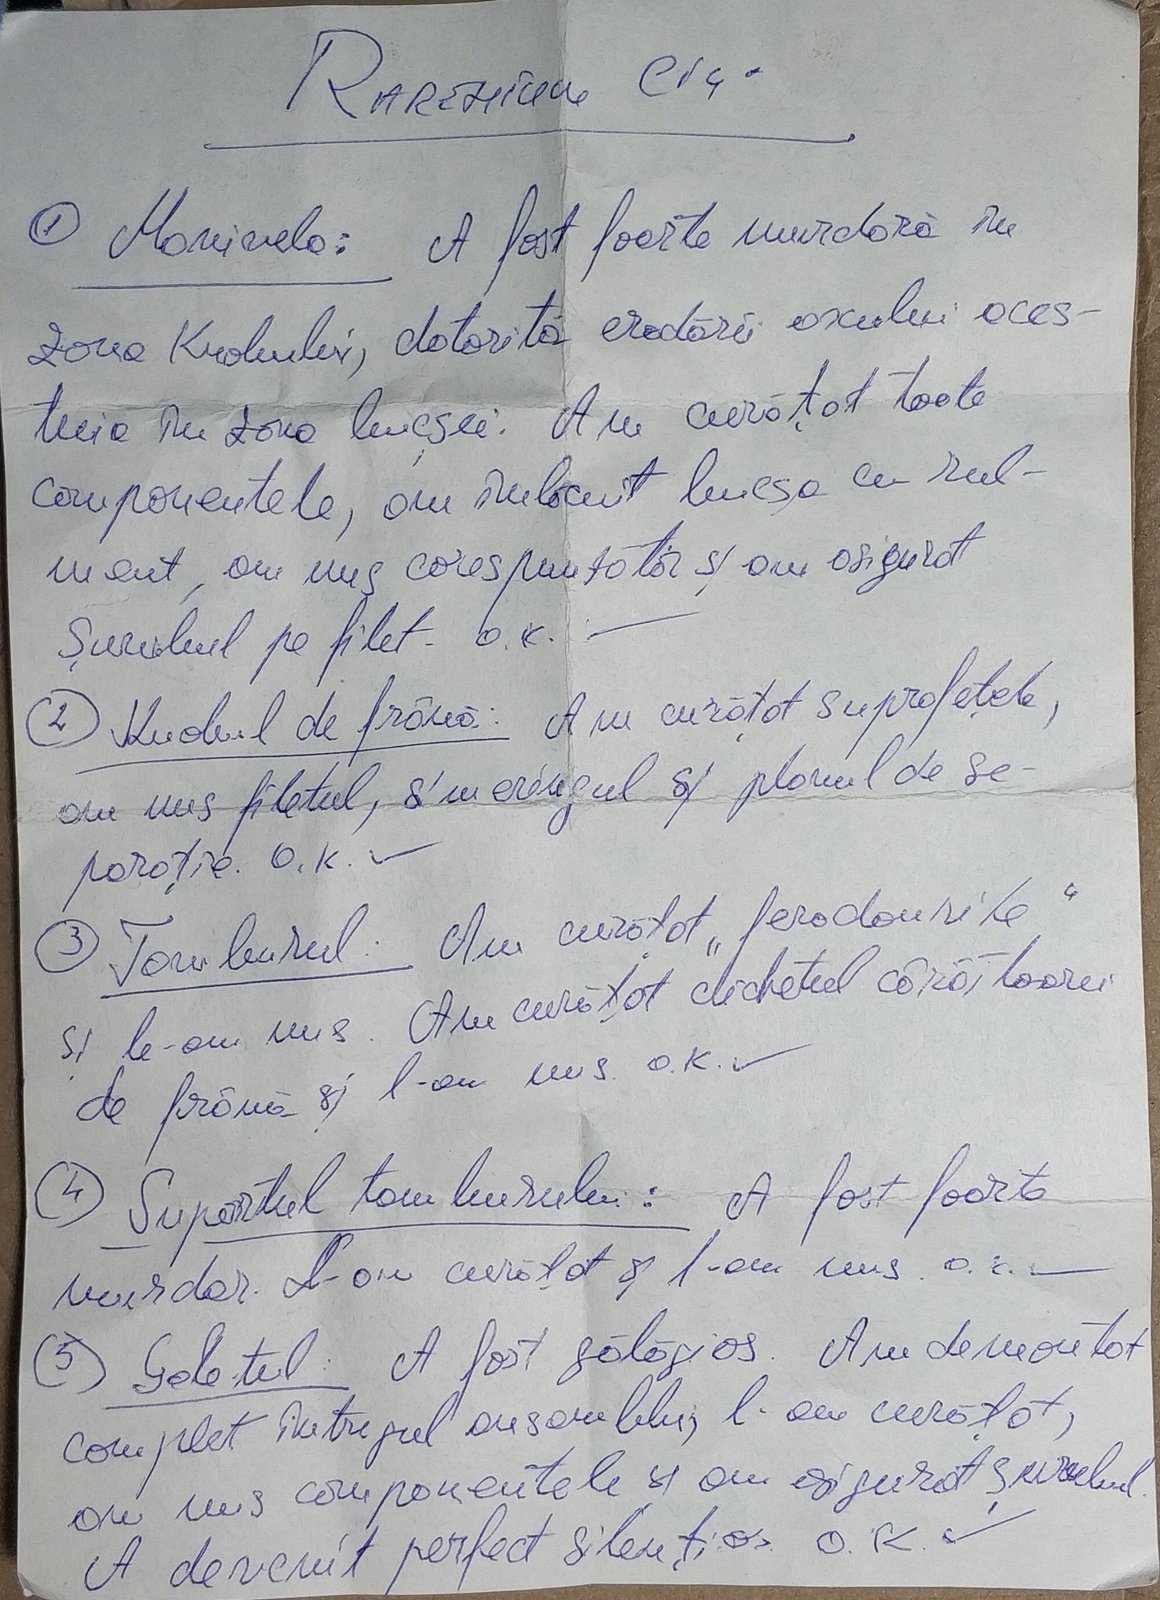 RARENIUM C14.
① Manivela: A fost foarte murdară în
zona knobului, datorită erodării axului aces-
teia în zona bucșei. Am curățat toate
componentele, am înlocuit bucșa cu rul-
ment, am uns corespunzător și am asigurat
șurubul pe filet. O.K.
② Knobul de frână: Am curățat suprafețele,
am uns filetul, simeringul și planul de se-
parație. O.K. ✓
③ Tamburul: Am curățat „ferodourile“
și le-am uns. Am curățat clichetul cârâitoarei
de frână și l-am uns. O.K. ✓
④ Suportul tamburului: A fost foarte
murdar. L-am curățat și l-am uns. O.K.
⑤ Galetul: A fost gălăgios. Am demontat
complet întregul ansamblu, l-am curățat,
am uns componentele și am asigurat șurubul.
A devenit perfect silențios. O.K. ✓